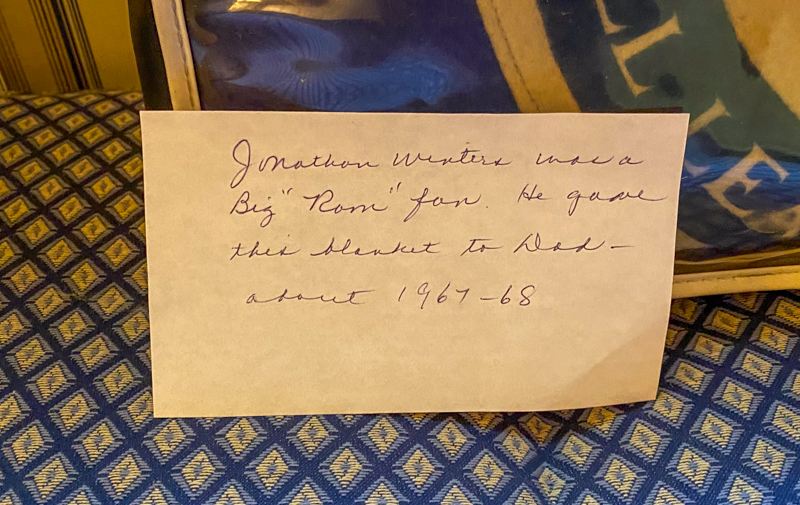 Jonathan Winters was a
Big "Ram" fan. He gave
this blanket to Dad –
about 1967–68
LLE